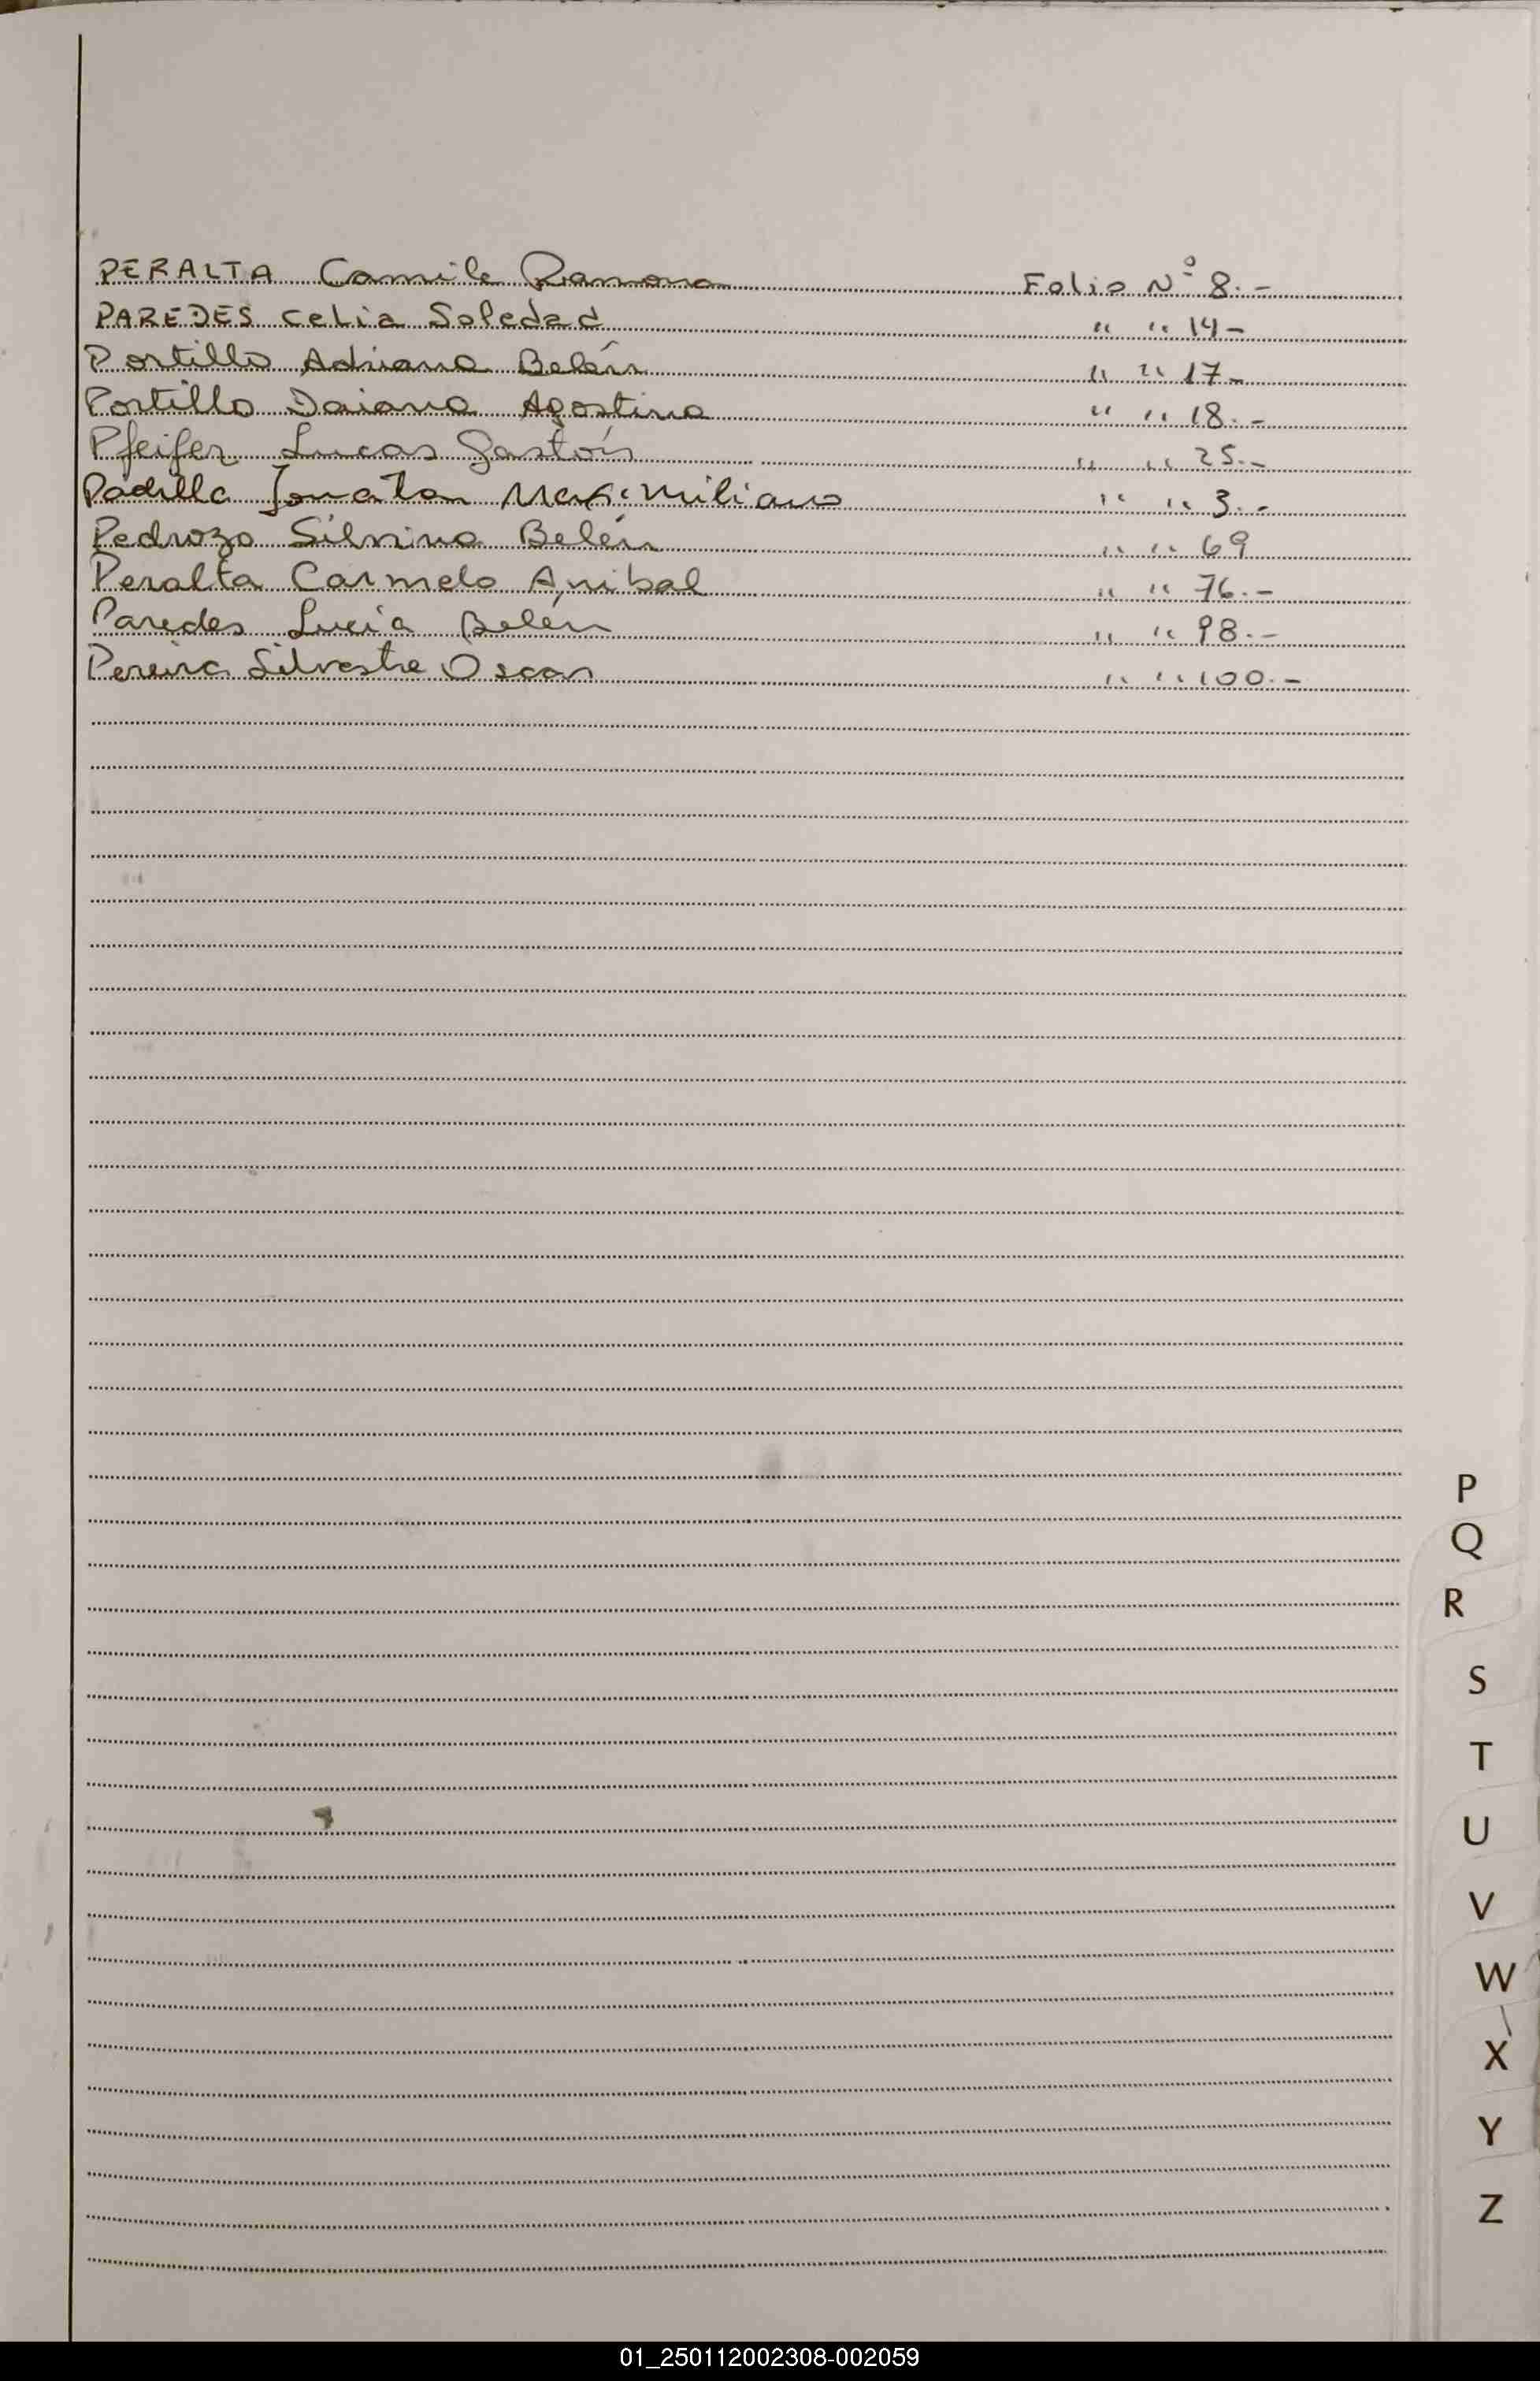 PERALTA Camila Ramona Folio Nº 8.-
PAREDES Celia Soledad " " 14-
Portillo Adriana Belén " " 17-
Portillo Daiana Agostina " " 18.-
Pfeifer Lucas Gastón " " 25.-
Padilla Jonatan Maximiliano " " 3.-
Pedrozo Silvina Belén " " 69
Peralta Carmelo Anibal " " 76.-
Paredes Lucía Belén " " 98.-
Pereira Silvestre Oscar " " 100.-
P
Q
R
S
T
U
V
W
X
Y
Z
01_250112002308-002059